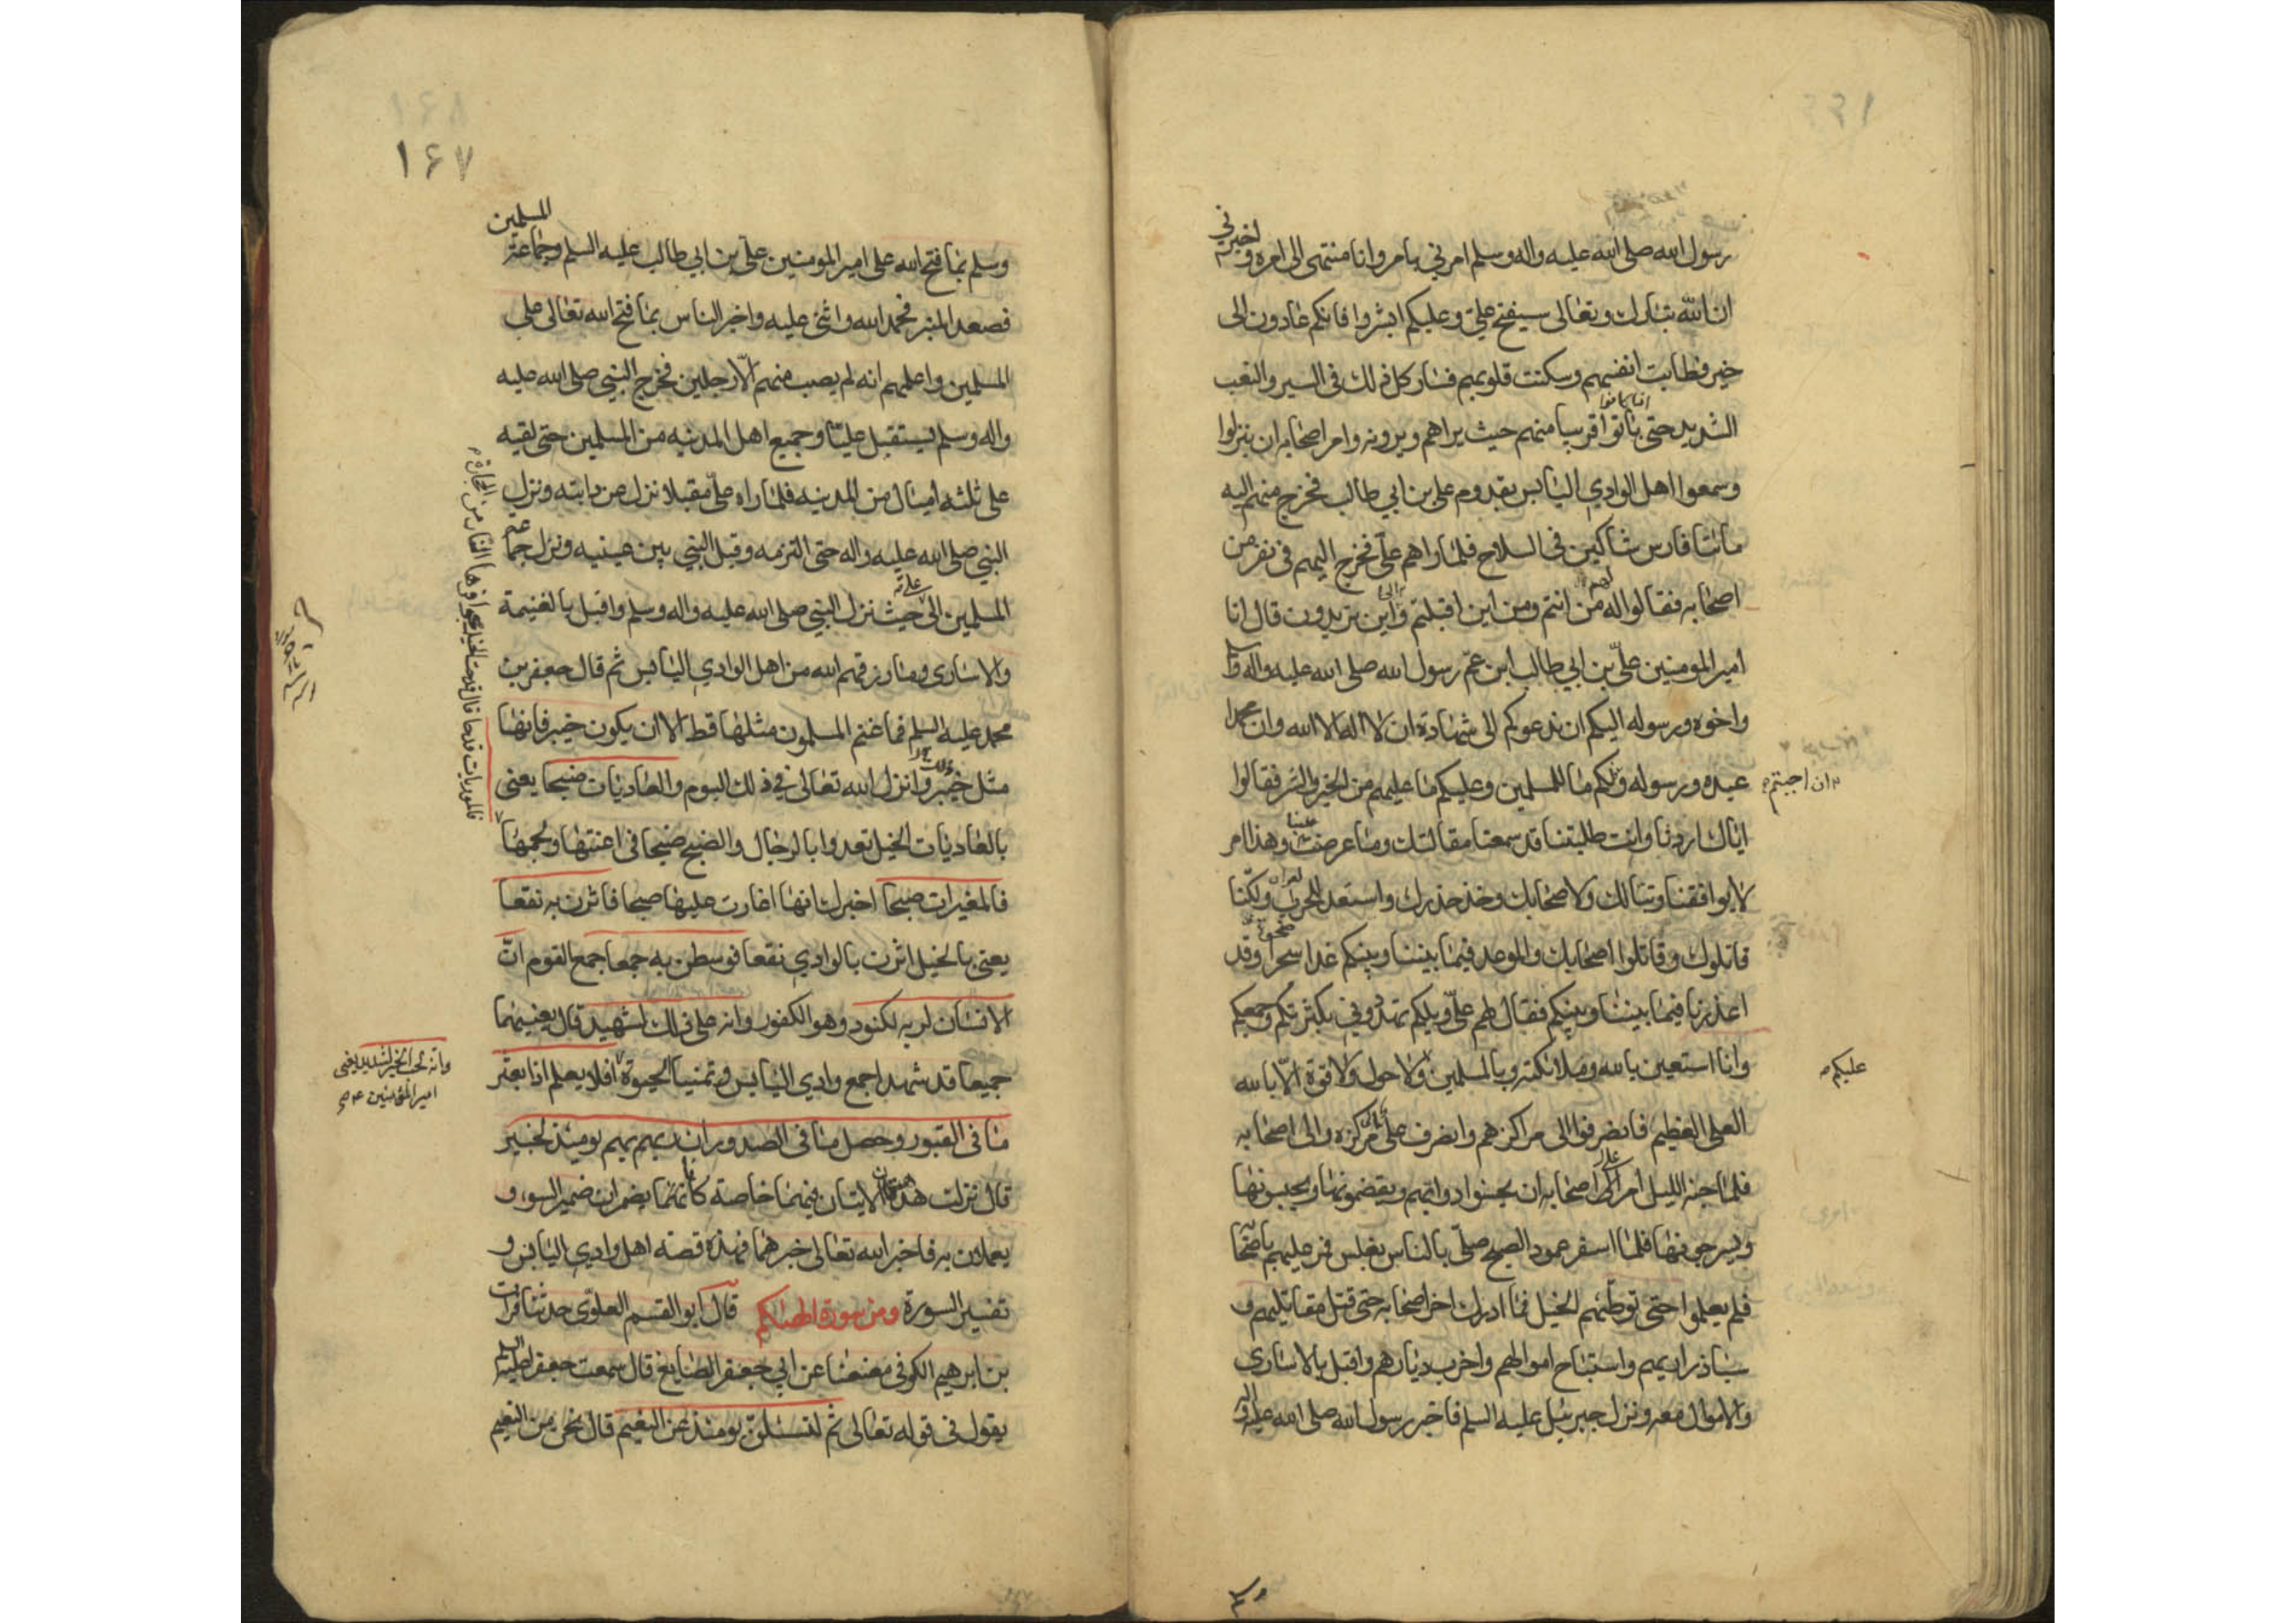 رسول الله صلى الله عليه واله وسلم امرني بامر وانا منتهى الى امره واخبرني
ان الله تبارك وتعالى سيفتح علي وعليكم ابشروا فانكم غادون الى
خير فطابت انفسهم وسكنت قلوبهم فسار كل ذلك في السير والتعب
الشديد حتى باتوا قريبا منهم حيث يراهم ويرونه وامر اصحابه ان ينزلوا
وسمعوا اهل الوادي اليابس بقدوم على بن ابي طالب فخرج منهم اليه
مائتا فارس شاكين في السلاح فلما راهم علي فخرج اليهم في نفر من
اصحابه فقالوا له من انتم ومن اين اقبلتم واين تريدون قال انا
امير المومنين علي بن ابي طالب ابن عم رسول الله صلى الله عليه واله
واخوه ورسوله اليكم ان ندعوكم الى شهادة ان لا اله الا الله وان محمدا
عبده ورسوله ولكم ما للمسلمين وعليكم ما عليهم من الخير والشر فقالوا
وان اجبتم
اياك اردنا وانت طلبتنا قد سمعنا مقالتك وما عرضت علينا وهذا امر
لا يوافقنا وتبا لك ولاصحابك وخذ حذرك واستعد للحرب ولكنا
قاتلوك وقاتلوا اصحابك والموعد فيما بيننا وبينكم غدا سحرا وقد
اعذرنا فيما بيننا وبينكم فقال لهم علي ويلكم تهددوني بكثرتكم وجمعكم
وانا استعين بالله وملائكته وبالمسلمين ولا حول ولا قوة الا بالله
عليكم
العلي العظيم فانصرفوا الى مراكزهم وانصرف علي الى مركزه والى اصحابه
فلما جنه الليل امر علي اصحابه ان يحسنوا دوابهم ويقضمونها ويحبسونها
ويسرجونها فلما اسفر عمود الصبح صلى بالناس بغلس فمر عليهم باصحا
فلم يعلموا حتى توطئهم الخيل فما ادرك اخر اصحابه حتى قتل مقاتليهم و
سبا ذراريهم واستباح اموالهم واخرب ديارهم واقبل بالاسارى
والاموال معه ونزل جبرئيل عليه السلم فاخبر رسول الله صلى الله عليه واله
١۶٨
١۶٧
وسلم بما فتح الله على امير المومنين علي بن ابي طالب عليه السلم وجماعة المسلمين
فصعد المنبر فحمد الله واثنى عليه واخبر الناس بما فتح الله تعالى على
المسلمين واعلمهم انه لم يصب منهم الا رجلين فخرج النبي صلى الله عليه
واله وسلم يستقبل عليا وجميع اهل المدينه من المسلمين حتى لقيه
على ثلثه اميال من المدينه فلما راه علي مقبلا نزل عن دابته ونزل
النبي صلى الله عليه واله حتى التزمه وقبل النبي بين عينيه ونزل جماعة
المسلمين الى حيث نزل النبي صلى الله عليه واله وسلم واقبل بالغنيمة
والاسارى وما رزقهم الله من اهل الوادي اليابس ثم قال جعفر بن
محمد عليه السلم فما غنم المسلمون مثلها قط الا ان يكون خيبر فانها
مثل خيبر وانزل الله تعالى في ذلك اليوم والعاديات ضبحا يعنى
بالعاديات الخيل تعدوا بالرجال والضبح ضبحا في اعنتها ولجمها
فالموريات قدحا قال قدحت الخيل بحوافرها النار من الحجارة
فالمغيرات صبحا اخبرك انها اغارت عليها صبحا فاثرن به نقعا
يعنى بالخيل اثرن بالوادي نقعا فوسطن به جمعا جمع القوم ان
الانسان لربه لكنود وهو الكفور وانه على ذلك لشهيد قال يعنيهما
جميعا قد شهدا جمع وادي اليابس وتمنيا الحيوة افلا يعلم اذا بعثر
وانه لحب الخير لشديد يعنى
امير المؤمنين
ما في القبور وحصل ما في الصدور ان ربهم بهم يومئذ لخبير
قال نزلت هاتان الايتان فيهما خاصة كانما يضمران ضمير السوء و
يعملان به فاخبر الله تعالى خبرهما فهذه قصة اهل وادي اليابس و
تفسير السورة ومن سورة الهيكم قال ابو القسم العلوي حدثنا فرات
بن ابرهيم الكوفى معنعنا عن ابي جعفر الصايغ قال سمعت جعفر عليه
يقول في قوله تعالى ثم لتسئلن يومئذ عن النعيم قال نحن من النعيم